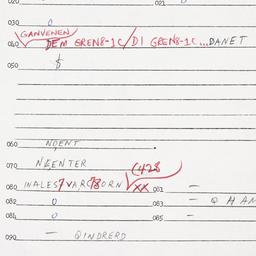 020 021
030 0
GANVENEN
040 DEM GREN8-1C/DI GREN8-1C...DANET
050
060 NGENT
070 NGENTER (428
080 INALES7VARC78ORN XX 081 —
082 0 083 —
084 0 085 —
090 — QINDRERD